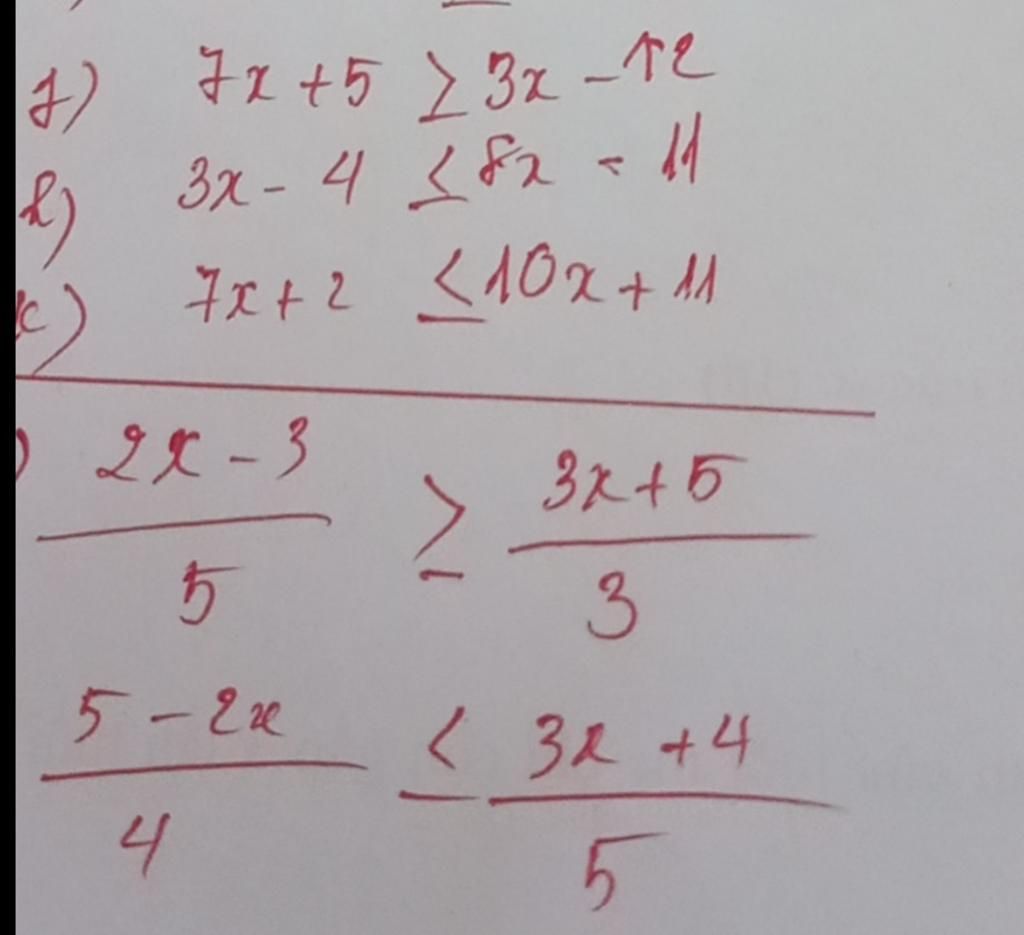 7x + 5 ≥ 3x - 12
3x - 4 ≤ 8x - 11
7x + 2 ≤ 10x + 11
) 2x - 3 / 5 ≥ 3x + 5 / 3
5 - 2x / 4 ≤ 3x + 4 / 5